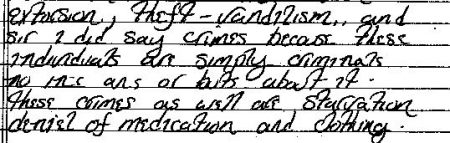 extorsion, theft - vandilism, and
sir I did say crimes because these
individuals are simply criminals
no ifs ans or buts about it.
these crimes as well are starvation
deniel of medication and clothing.